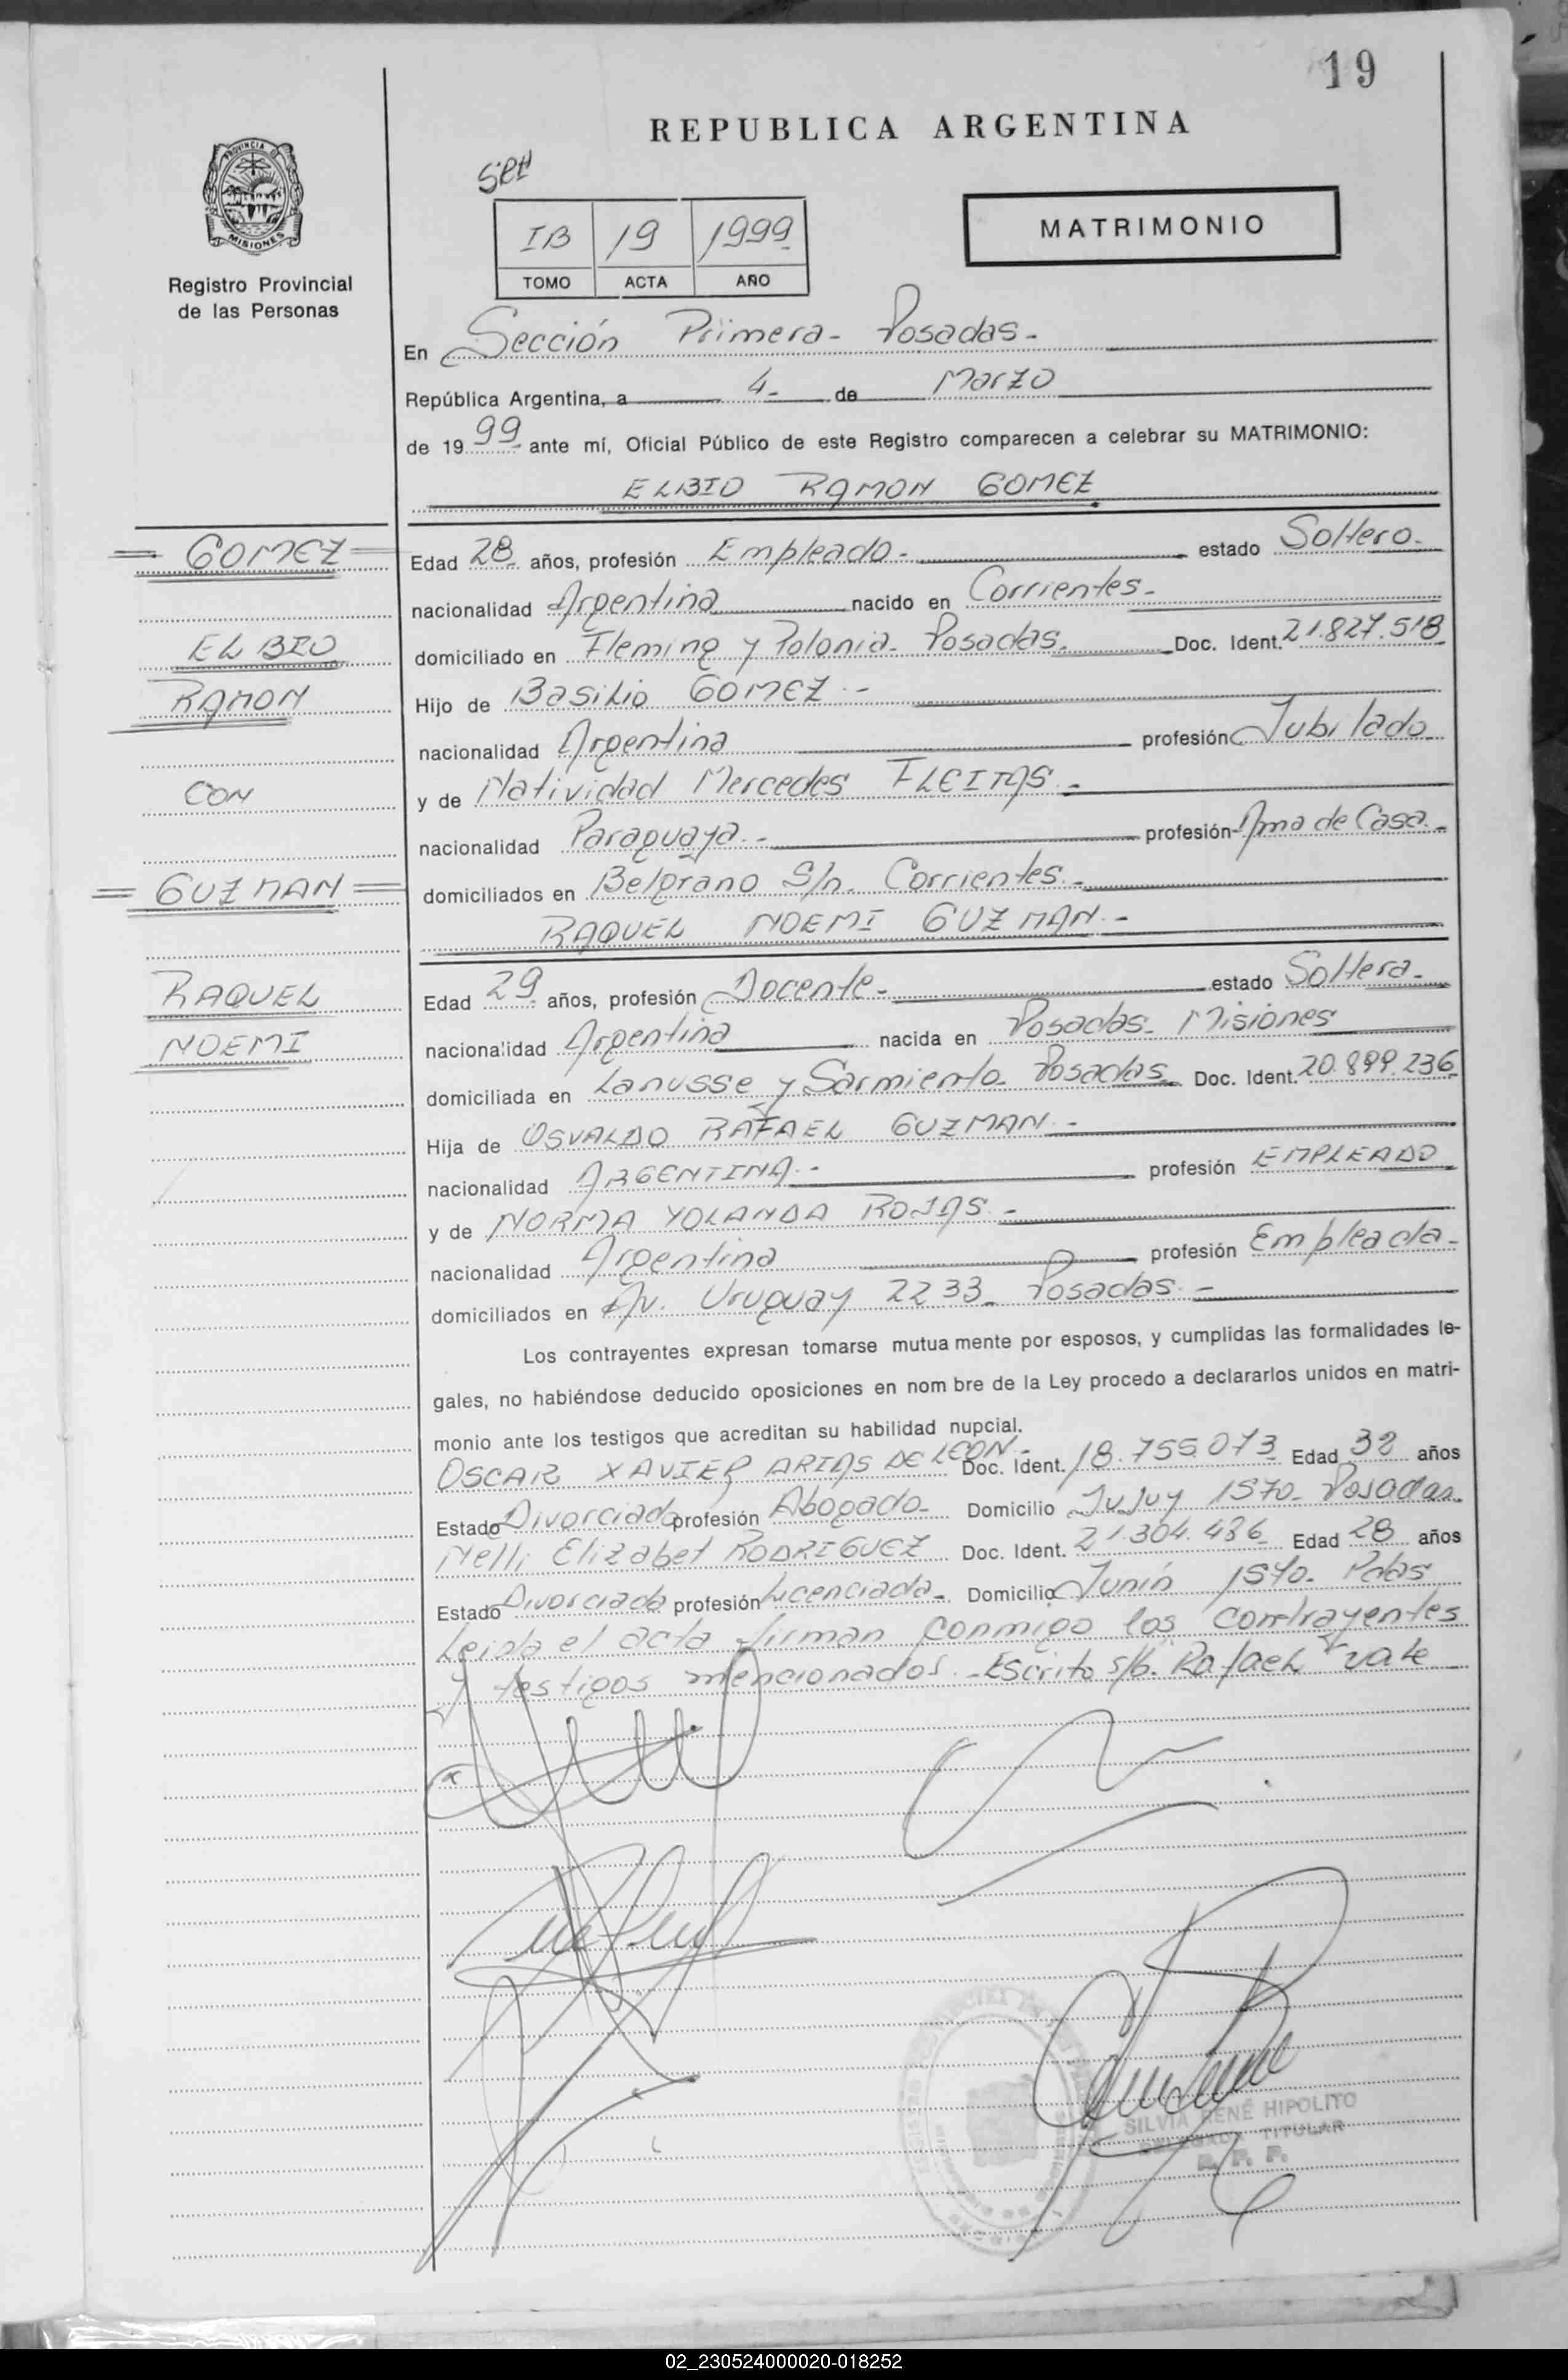 19
REPUBLICA ARGENTINA
PROVINCIA DE
MISIONES
Registro Provincial
de las Personas
IB 19 1999
TOMO ACTA AÑO
MATRIMONIO
En Sección Primera - Posadas -
República Argentina, a 4 - de Marzo
de 1999 - ante mí, Oficial Público de este Registro comparecen a celebrar su MATRIMONIO:
ELBIO RAMON GOMEZ
GOMEZ
ELBIO
RAMON
CON
GUZMAN
RAQUEL
NOEMI
Edad 28 años, profesión Empleado - estado Soltero -
nacionalidad Argentina nacido en Corrientes -
domiciliado en Fleming y Polonia - Posadas. Doc. Ident. 21.827.518
Hijo de Basilio GOMEZ . -
nacionalidad Argentina profesión Jubilado
y de Natividad Mercedes FLEITAS . -
nacionalidad Paraguaya . - profesión Ama de Casa . -
domiciliados en Belgrano S/n. Corrientes . -
RAQUEL NOEMI GUZMAN . -
Edad 29 años, profesión Docente - estado Soltera -
nacionalidad Argentina nacida en Posadas - Misiones
domiciliada en Lanusse y Sarmiento - Posadas Doc. Ident. 20.899.236
Hija de OSVALDO RAFAEL GUZMAN . -
nacionalidad ARGENTINA . - profesión EMPLEADO
y de NORMA YOLANDA ROJAS . -
nacionalidad Argentina profesión Empleada -
domiciliados en Av. Uruguay 2233 - Posadas . -
Los contrayentes expresan tomarse mutua mente por esposos, y cumplidas las formalidades le-
gales, no habiéndose deducido oposiciones en nom bre de la Ley procedo a declararlos unidos en matri-
monio ante los testigos que acreditan su habilidad nupcial.
OSCAR XAVIER ARIAS DE LEON - Doc. Ident. 18.755.073 Edad 32 años
Estado Divorciado profesión Abogado - Domicilio Jujuy 1570 - Posadas
Nelli Elizabet RODRIGUEZ Doc. Ident. 21.304.436 Edad 28 años
Estado Divorciada profesión Licenciada - Domicilio Junín 1540 - Pdas
Leida el acta firman conmigo los contrayentes
y testigos mencionados . - Escrito s/b. Rafael vale
SILVIA RENÉ HIPOLITO
TITULAR
R. P. P.
02_230524000020-018252